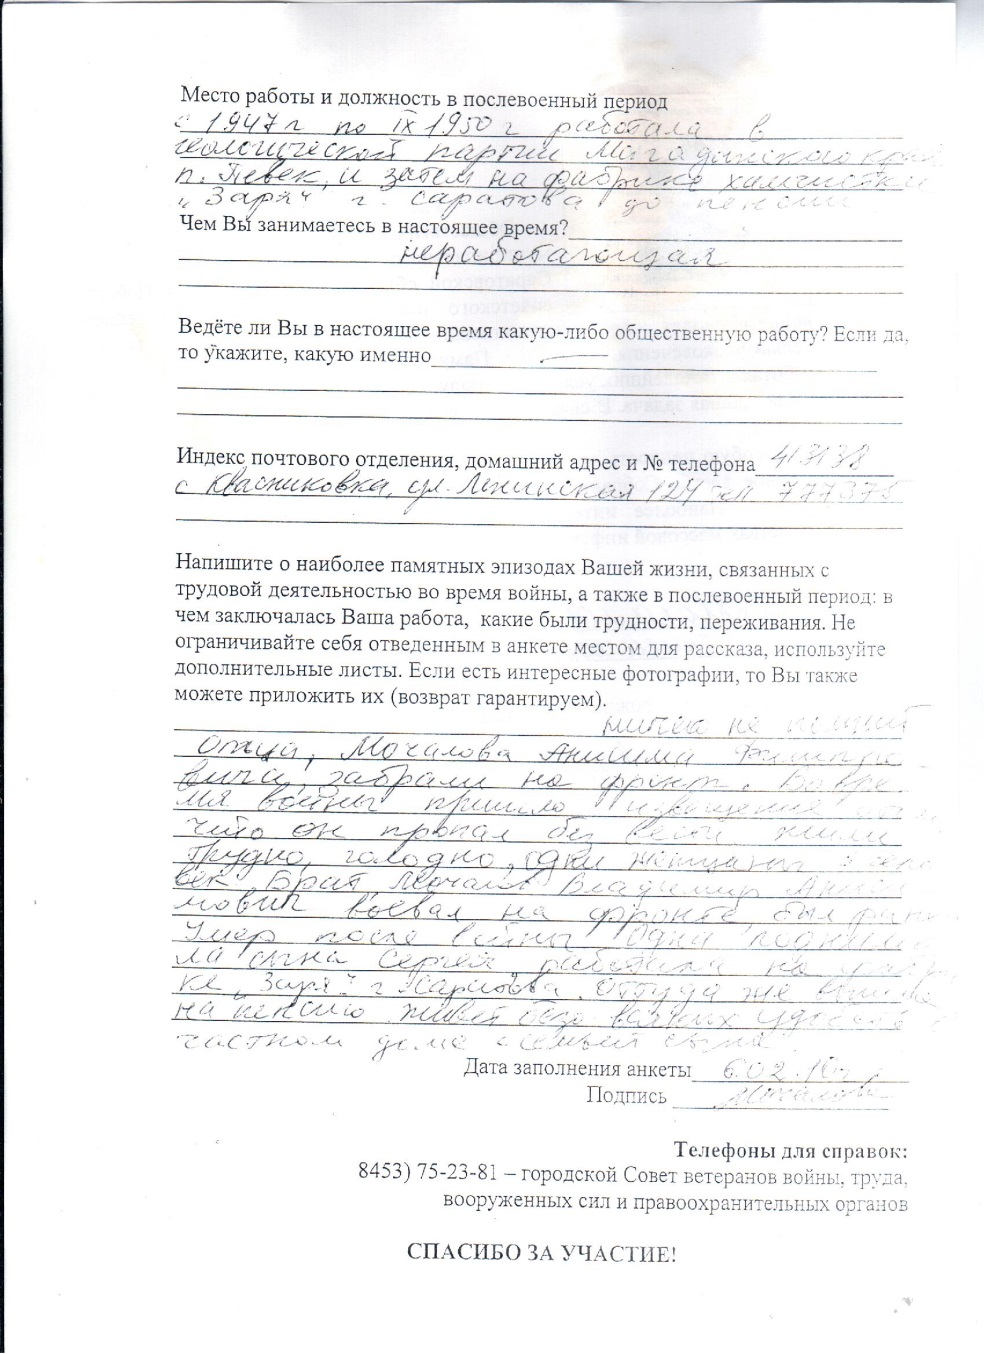 Место работы и должность в послевоенный период
с 1947 г по IX 1950 г работала в
геологической партии Магаданского края
п. Певек, и затем на фабрике химчистки
"Заря" г. Саратова до пенсии
Чем Вы занимаетесь в настоящее время?
неработающая
Ведёте ли Вы в настоящее время какую-либо общественную работу? Если да,
то укажите, какую именно
Индекс почтового отделения, домашний адрес и № телефона 413138
с Квасниковка, ул. Ленинская 124 777375
Напишите о наиболее памятных эпизодах Вашей жизни, связанных с
трудовой деятельностью во время войны, а также в послевоенный период: в
чем заключалась Ваша работа, какие были трудности, переживания. Не
ограничивайте себя отведенным в анкете местом для рассказа, используйте
дополнительные листы. Если есть интересные фотографии, то Вы также
можете приложить их (возврат гарантируем).
ничего не помнит
Отца, Мочалова Анисима Филиппо
вича, забрали на фронт. Во вре
мя войны пришло извещение
что он пропал без вести жили
трудно, голодно, одни женщины
век Брат Мочалов Владимир Аниси
мович воевал на фронте, был
Умер после войны Одна
ла сына Сергея работала на фабри
ке "Заря" г Саратова. Оттуда же вышла
на пенсию живет без всяких удобств
частном доме с семьей сына
Дата заполнения анкеты 6.02.10 г
Подпись Мочалова
Телефоны для справок:
8453) 75-23-81 – городской Совет ветеранов войны, труда,
вооруженных сил и правоохранительных органов
СПАСИБО ЗА УЧАСТИЕ!